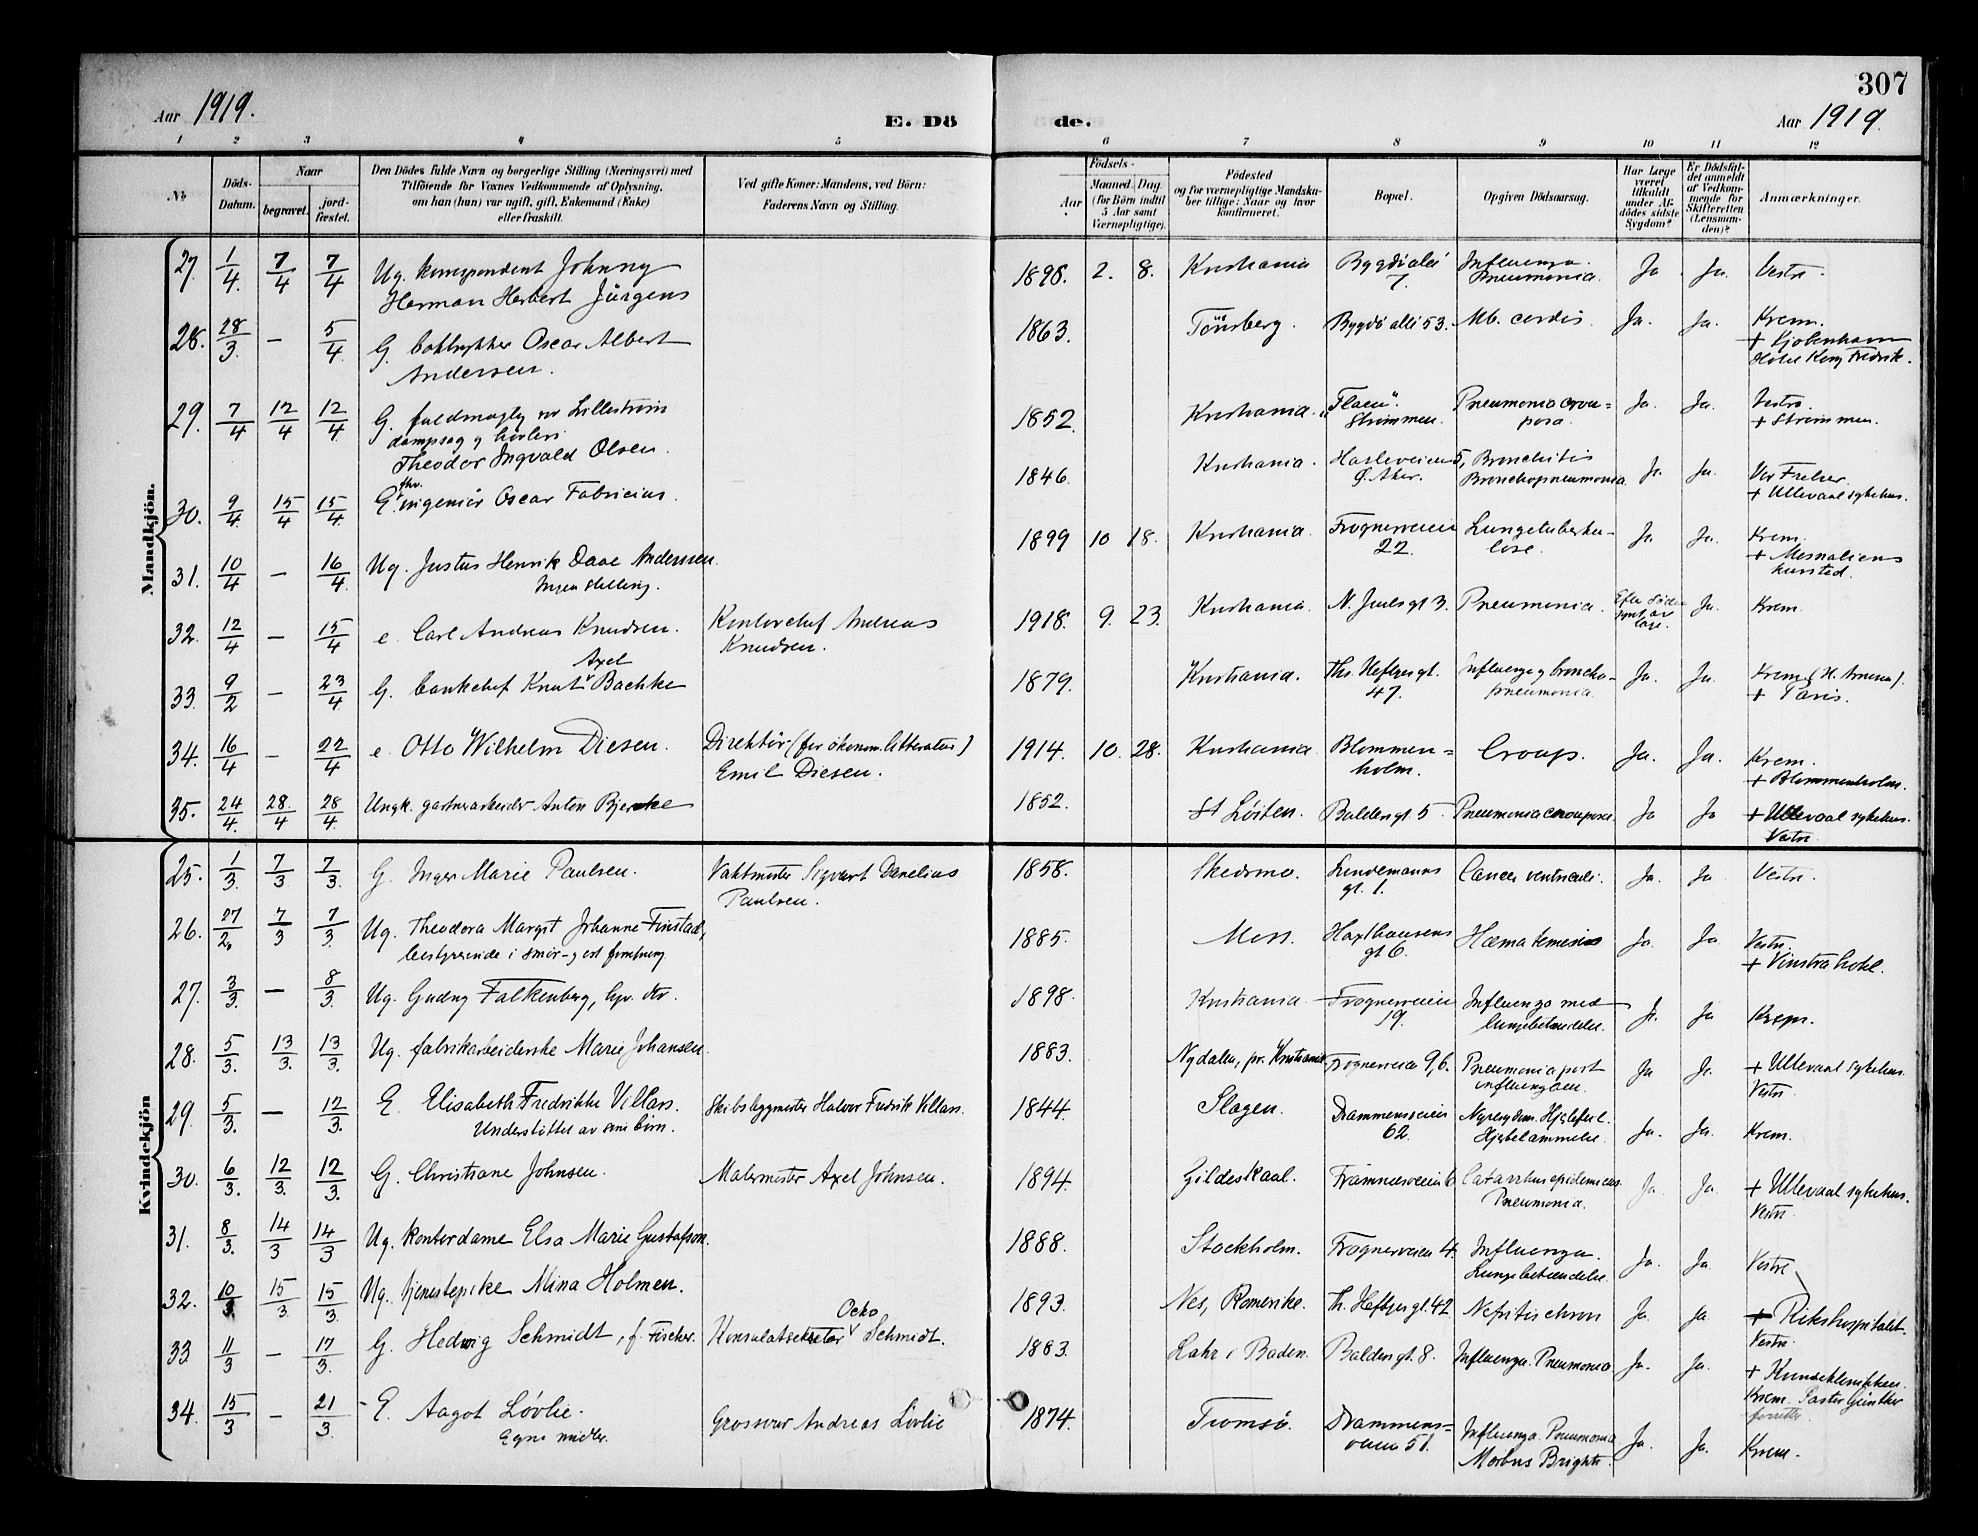 307
Aar 1919.
E. Dö
de.
Aar 1919.
1 2 3 4 5 6 7 8 9 10 11 12
No
Döds-Datum.
Naar
begravet.
jord-fæstet.
Den Dödes fulde Navn og borgerlige Stilling (Næringsvei) med
Tilföiende for Voxnes Vedkommende af Oplysning,
om han (hun) var ugift, gift, Enkemand (Enke)
eller fraskilt.
Ved gifte Koner: Mandens, ved Börn:
Faderens Navn og Stilling.
Födsels-
Aar
Maaned. Dag
(for Börn indtil
5 Aar samt
Værnepligtige).
Födested
og for værnepligtige Mandska-
ber tillige: Naar og hvor
konfirmeret.
Bopæl.
Opgiven Dödsaarsag.
Har Læge
været
tilkaldt
under Af-
dödes sidste
Sygdom?
Er Dödsfal-
det anmeldt
af Vedkom-
mende for
Skifteretten
(Lensman-
den)?
Anmærkninger.
Mandkjön.
27. 1/4. 7/4 7/4 Ug. korrespondent Johnny 1898. 2. 8. Kristiania Bygdö alé Influenza. Ja Ja. Vestre.
Herman Herbert Jürgens 7. Pneumonia.
28. 28/3. – 5/4 G. boktrykker Oscar Albert 1863. Tönsberg. Bygdö allé 53. Mb. cordis. Ja. Ja. Krem.
Andersen. + Kjøbenhavn
Hotel Kong Fredrik.
29. 7/4 12/4 12/4. G. fuldmægtig ved Lillestrøm 1852. Kristiania. "Flaen". Pneumonia crou- Ja. Ja. Vestre
dampsag og høvleri Strømmen. posa. + Strømmen.
Theodor Ingvald Olsen.
30. 9/4. 15/4 15/4. E. fhv. ingeniør Oscar Fabricius. 1846. Kristiania. Hasleveien 5, Bronchitis Ja. Ja. Vor Frelser.
Ø. Aker. Bronchopneumonia + Ullevaal sykehus.
31. 10/4 – 16/4 Ug. Justus Henrik Daae Anderssen. 1899 10 18. Kristiania. Frognerveien Lungetuberku- Ja Ja. Krem.
Ingen stilling. 22. lose. + Mesnaliens
kursted.
32. 12/4 – 15/4 e. Carl Andreas Knudsen. Kontorchef Andreas 1918. 9. 23. Kristiania. N. Juelsgt 3. Pneumonia. Ja. Krem.
Knudsen.
33. 9/2 – 23/4 G. bankchef Knut Axel Bachke 1879. Kristiania. Ths. Heftyesgt. Influenza og broncho- Ja. Ja. Krem.
47. pneumonia. + Paris.
34. 16/4 – 22/4 e. Otto Wilhelm Diesen. Direktör (for ökonom. litteratur) 1914. 10. 28. Kristiania Blommen- Croup. Ja. Ja. Krem.
Emil Diesen. holm. + Blommenholm.
35. 24/4. 28/4 28/4. Ungk. gartnerarbeider Anton Bjerke 1852. Løiten. Baldersgt. 5 Pneumonia crouposa. Ja Ja + Ullevaal sykehus.
Vestre.
Kvindekjön
25. 1/3. 7/3 7/3. G. Inger Marie Paulsen. Vaktmester Sigvart Danelius 1858. Skedsmo. Lindemanns Cancer ventriculi. Ja. Ja Vestre.
Paulsen. gt. 1.
26. 27/2. 7/3 7/3. Ug. Theodora Margit Johanne Finstad, 1885. Moss. Haxthausens Hæmatemesis Ja. Ja. Vestre.
bestyrerinde i smör- og ost forretning gt 6. + Vinstra hotel.
27. 3/3. – 8/3. Ug. Gudny Falkenberg, 1898. Kristiania Frognerveien Influenza med Ja. Ja Krem.
19. lungebetændelse.
28. 5/3. 13/3. 13/3. Ug. fabrikarbeiderske Marie Johansen. 1883. Nydalen, pr. Kristiania Frognerveien 9, 6. Pneumonia post Ja Ja. + Ullevaal sykehus.
influenzaen. Vestre
29. 5/3. – 12/3. E. Elisabeth Fredrikke Villars. Skibsbyggmester Halvor Fredrik Villars. 1844. Slagen. Drammensveien Nyresygdom. Hjertefeil. Ja. Ja. Krem.
Understöttet av sine börn. 62. Hjertelammelse.
30. 6/3. 12/3. 12/3. G. Christiane Johnsen. Malermester Axel Johnsen. 1894. Gildeskaal. Framnesveien 6 Catarrhus epidemicus. Ja. Ja. + Ullevaal sykehus.
Pneumonia. Vestre.
31. 8/3. 14/3 14/3 Ug. kontordame Elsa Marie Gustafson. 1888. Stockholm. Frognerveien 4. Influenza. Ja. Ja. Vestre
Lungebetændelse.
32. 10/3. 15/3. 15/3. Ug. tjenestepike Mina Holmen. 1893. Nes, Romerike. Th. Heftyesgt. 42 Nefritis chron Ja. Ja. + Rikshospitalet.
Vestre.
33 11/3 – 17/3. G. Hedwig Schmidt, f. Fischer. Konsulatsekretær Ocko Schmidt. 1883. Lahr i Baden. Baldersgt. 8. Influenza. Pneumonia Ja. Ja. + Kvindeklinikken.
Krem. Pastor Günther
forretter.
34. 15/3 – 21/3. E. Aagot Lövlie. Grosserer Andreas Lövlie 1874. Tromsö. Drammens- Influenza. Pneumonia Ja. Ja. Krem.
Egne midler. veien 51. Morbus Brightii.